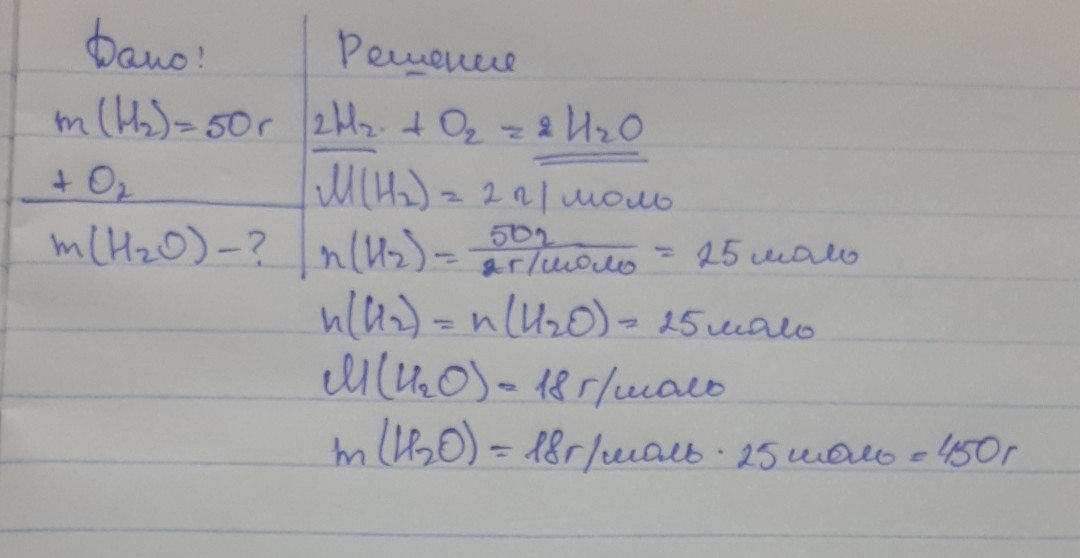 Дано:
m(H₂)=50г
+ O₂
m(H₂O)-?
Решение
2H₂ + O₂ = 2H₂O
M(H₂) = 2 г/моль
n(H₂) = 50г / 2г/моль = 25 моль
n(H₂) = n(H₂O) = 25 моль
M(H₂O) = 18 г/моль
m(H₂O) = 18г/моль · 25 моль = 450г